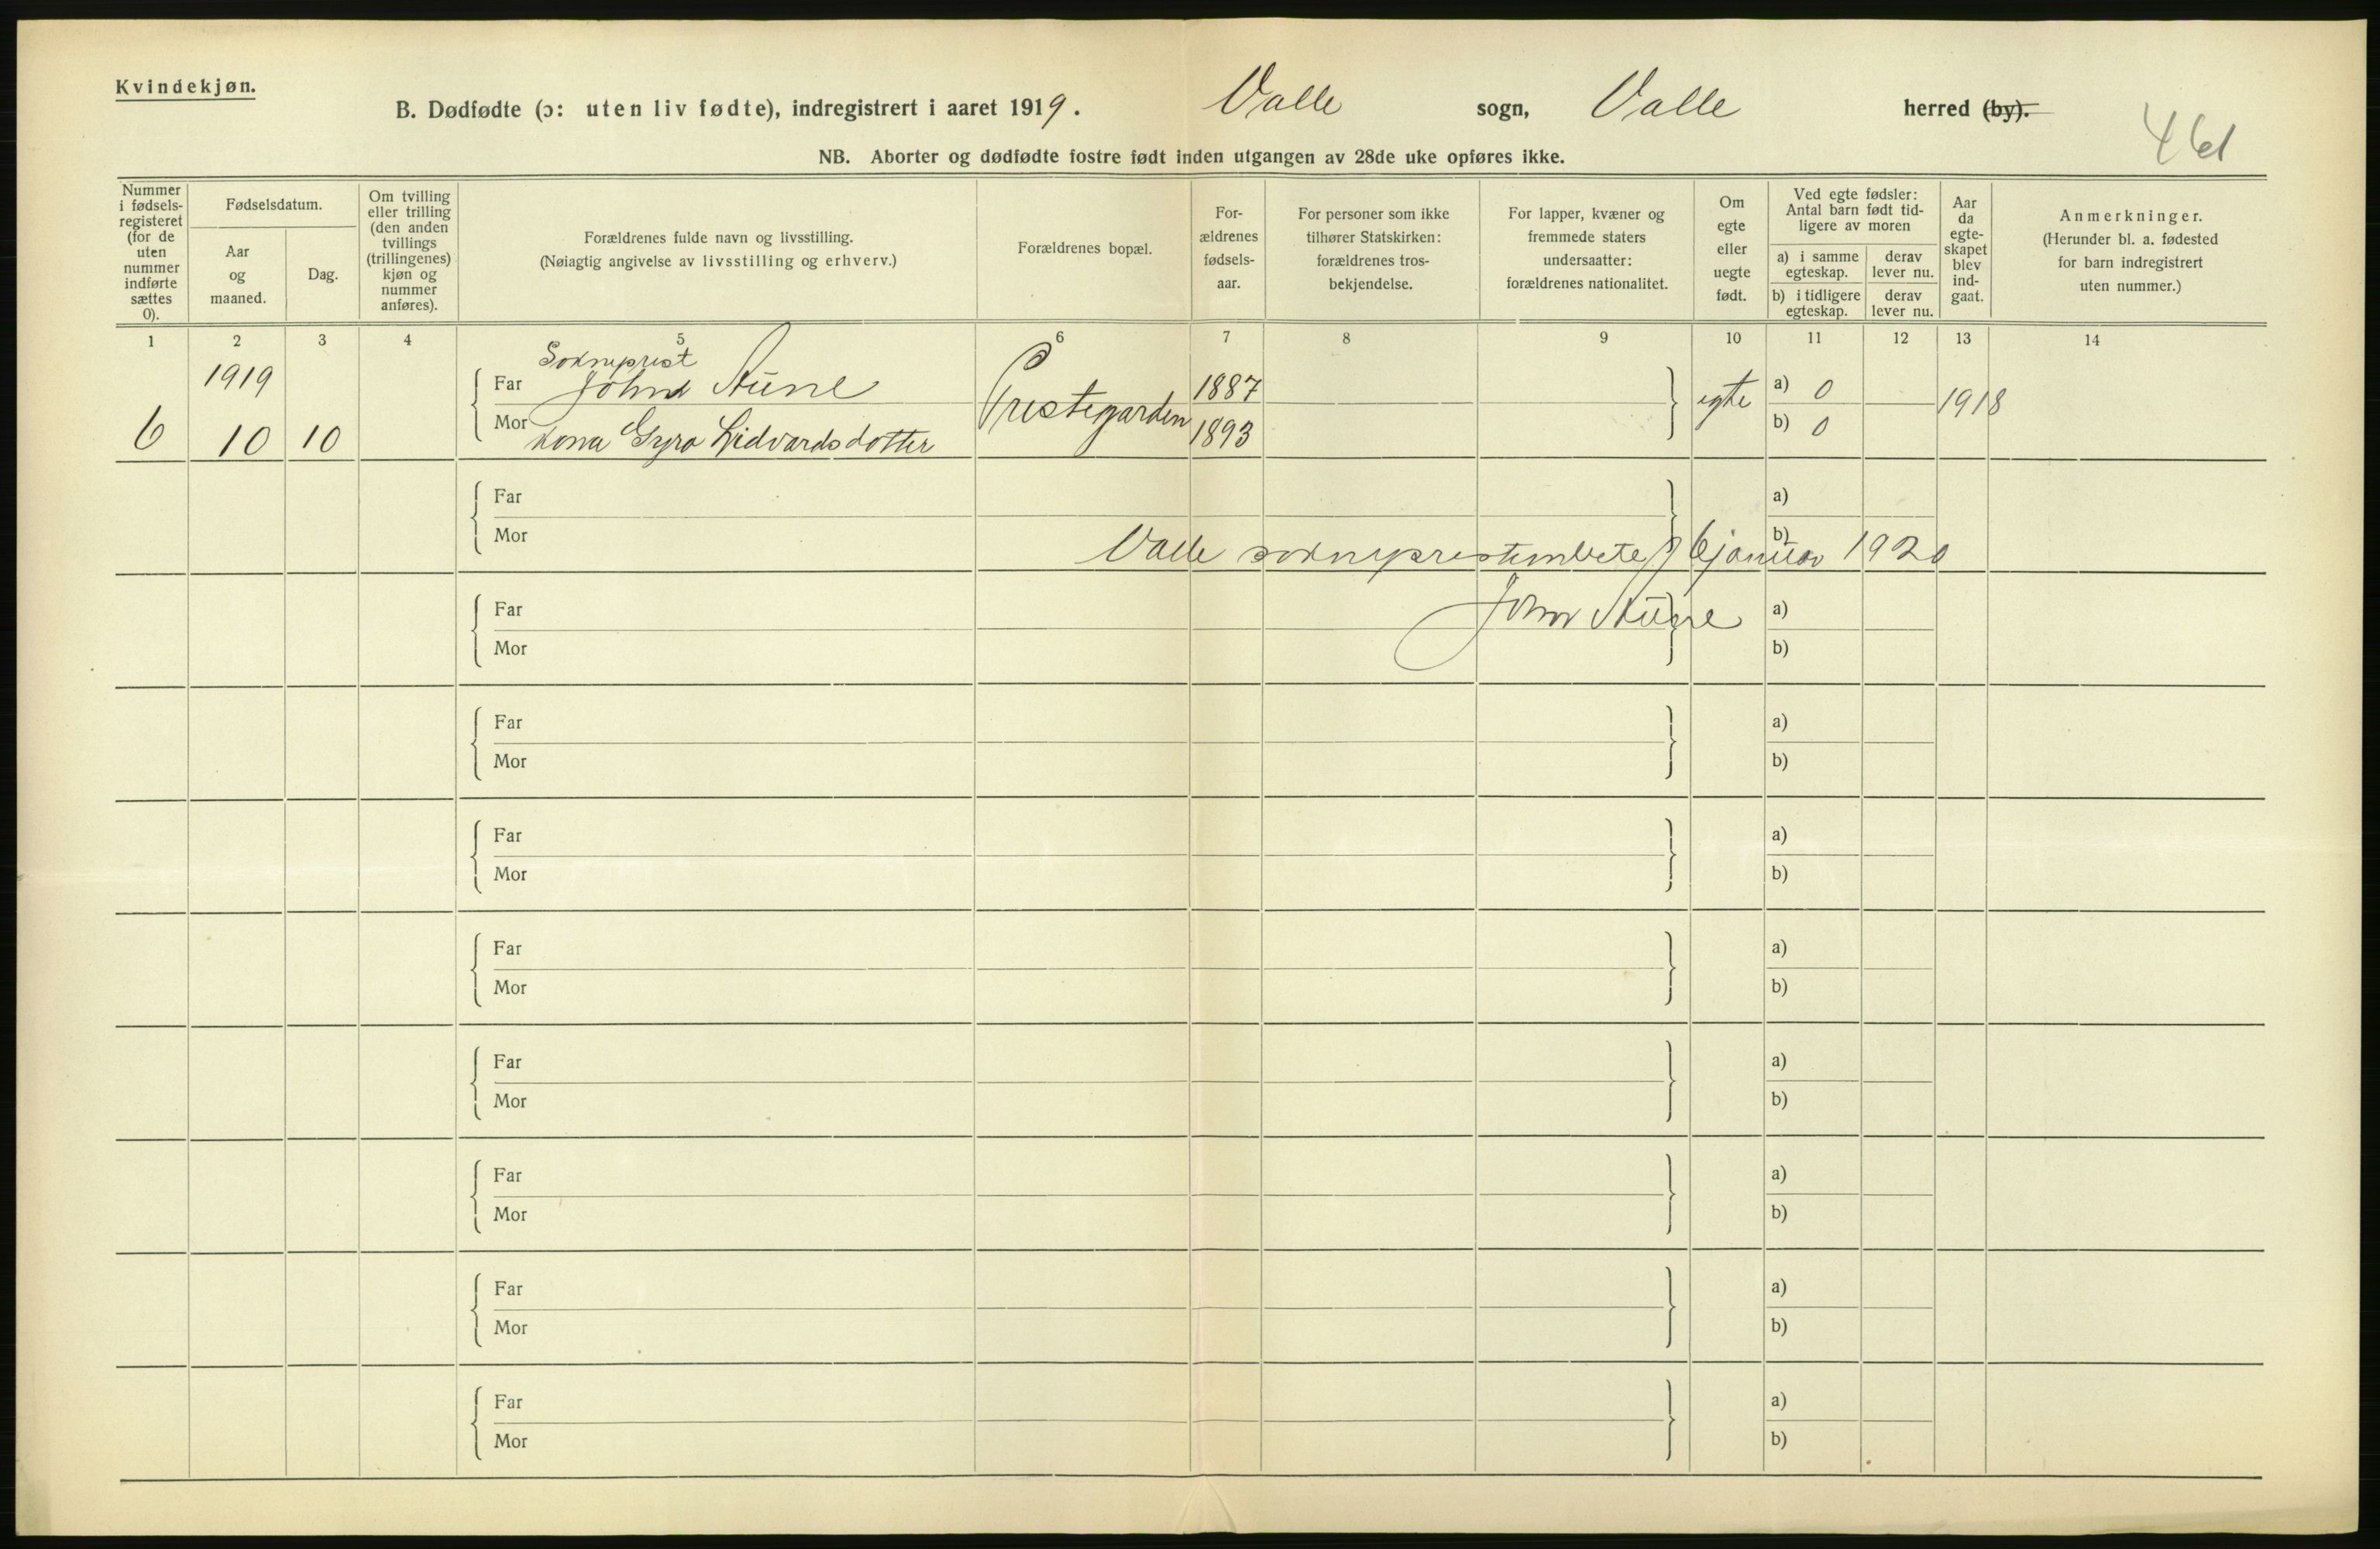 Kvindekjøn.
B. Dødfødte (ɔ: uten liv fødte), indregistrert i aaret 1919. Valle sogn, Valle herred (by).
461
NB. Aborter og dødfødte fostre født inden utgangen av 28de uke opføres ikke.
Nummer i fødsels-registeret (for de uten nummer indførte sættes 0).
Fødselsdatum.
Aar og maaned.
Dag.
Om tvilling eller trilling (den anden tvillings (trillingenes) kjøn og nummer anføres).
Forældrenes fulde navn og livsstilling.
(Nøiagtig angivelse av livsstilling og erhverv.)
Forældrenes bopæl.
For-ældrenes fødsels-aar.
For personer som ikke tilhører Statskirken: forældrenes tros-bekjendelse.
For lapper, kvæner og fremmede staters undersaatter: forældrenes nationalitet.
Om egte eller uegte født.
Ved egte fødsler: Antal barn født tid-ligere av moren
a) i samme egteskap.
derav lever nu.
b) i tidligere egteskap.
derav lever nu.
Aar da egte-skapet blev ind-gaat.
Anmerkninger.
(Herunder bl. a. fødested for barn indregistrert uten nummer.)
1 2 3 4 5 6 7 8 9 10 11 12 13 14
Sokneprest
1919 Far John Aune Prestegarden 1887 egte a) 0 1918
6 10 10 Mor kona Gyro Lidvardsdotter 1893 b) 0
Far a)
Mor b)
Valle sokneprestembete 6 januar 1920
John Aune
Far a)
Mor b)
Far a)
Mor b)
Far a)
Mor b)
Far a)
Mor b)
Far a)
Mor b)
Far a)
Mor b)
Far a)
Mor b)
Far a)
Mor b)